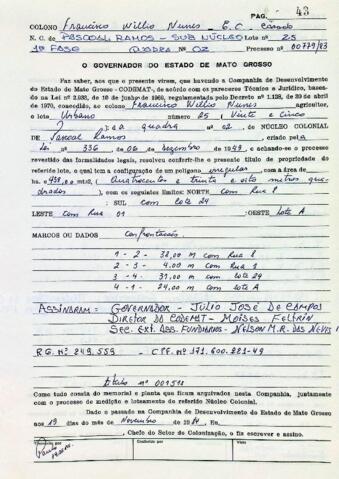 PAG. 43
COLONO Francisco Willio Nunes - E.C. - casado
N. C. de PASCOAL RAMOS - SUB NÚCLEO Lote n.o 25
1ª FASE QUADRA Nº 02 Processo n.o 00779/83
O GOVERNADOR DO ESTADO DE MATO GROSSO
Faz saber, aos que o presente virem, que havendo a Companhia de Desenvolvimento
do Estado de Mato Grosso - CODEMAT-, de acôrdo com os pareceres Técnico e Jurídico, baseados
na Lei nº 2.095, de 10 de junho de 1969, regulamentada pelo Decreto nº 1.138, de 30 de abril
de 1970, concedido ao colono Francisco Willio Nunes agricultor,
o lote Urbano número 25 (Vinte e cinco
) da quadra nº 02, DE NÚCLEO COLONIAL
DE Pascoal Ramos, de acordo com a
Lei nº 336, de 06 de dezembro de 1949, e achando-se o processo
revestido das formalidades legais, resolveu conferir-lhe o presente título de propriedade do
referido lote, o qual tem a configuração de um polígono irregular, com a área de
hs. 0 438,00 m2. (Quatrocentos e trinta e oito metros qua-
drados), com os seguintes limites: NORTE com Rua 1
: SUL com lote 24
LESTE com Rua 01 :OESTE Lote A
MARCOS OU DADOS Confrontação
1 - 2 - 38,00 m com Rua 1
2 - 3 - 4,00 m com Rua
3 - 4 - 31,00 m com lote 24
4 - 1 - 24,00 m com lote A
ASSINARAM: GOVERNADOR - JÚLIO JOSÉ DE CAMPOS
DIRETOR DA CODEMAT - MOISES FELTRIN
SEC. EXT. ASS. FUNDIÁRIOS - NELSON M.R. DAS NEVES
RG. Nº 249.559 - CPF. Nº 171.600.221-49
título nº 001511
Como tudo consta do memorial e planta que ficam arquivados nesta Companhia, juntamente
com o processo de medição e loteamento do referido Núcleo Colonial.
Dado e passado na Companhia de Desenvolvimento do Estado de Mato Grosso
aos 19 dias do mes de Novembro de 1984. Eu,
, Chefe do Setor de Colonização, o fis escrever e assino.
Conferido por
Visto